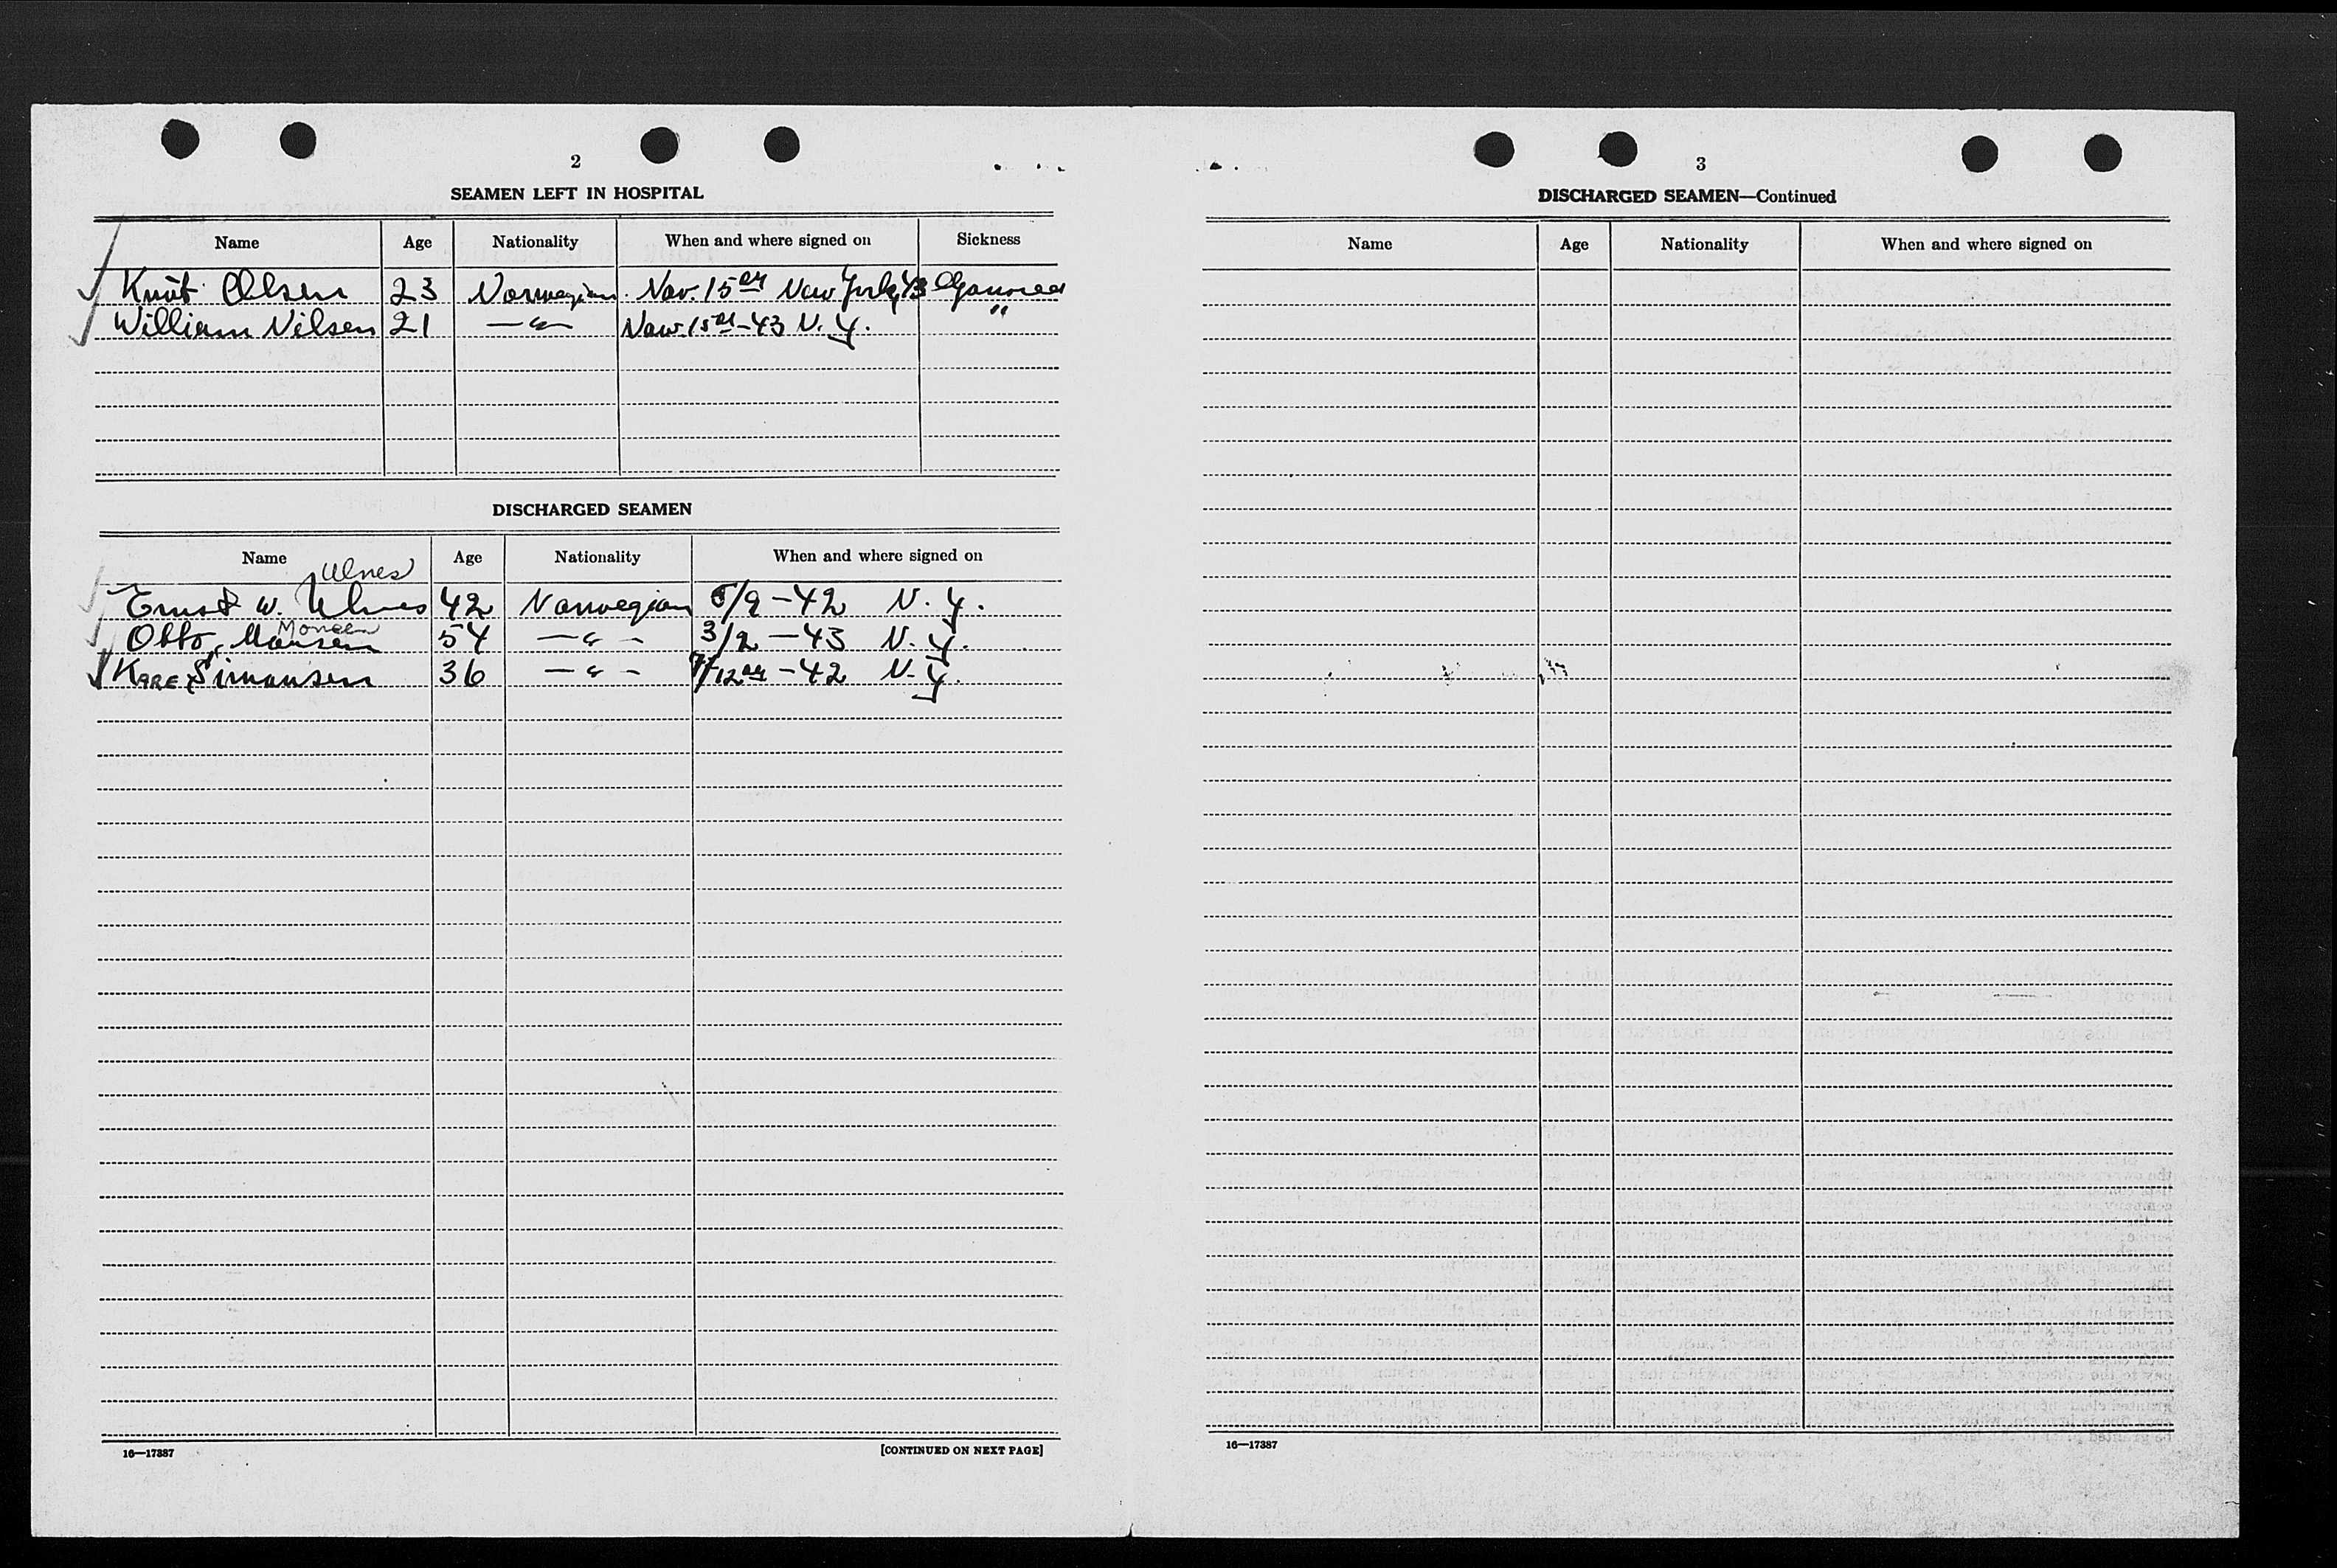 2
SEAMEN LEFT IN HOSPITAL
Name Age Nationality When and where signed on Sickness
Knut Olsen 23 Norwegian Nov. 15th New York, 43
William Nilsen 21 —"— Nov. 15th -43 N. Y. "
DISCHARGED SEAMEN
Name Age Nationality When and where signed on
Ulnes
Ernst W. Ulnes 42 Norwegian 5/9 -42 N. Y.
Monsen
Otto, Monsen 54 —"— 3/2 -43 N. Y.
KARE Simonsen 36 —"— 7/12th -42 N. Y.
16—17387 [CONTINUED ON NEXT PAGE]
3
DISCHARGED SEAMEN—Continued
Name Age Nationality When and where signed on
16—17387